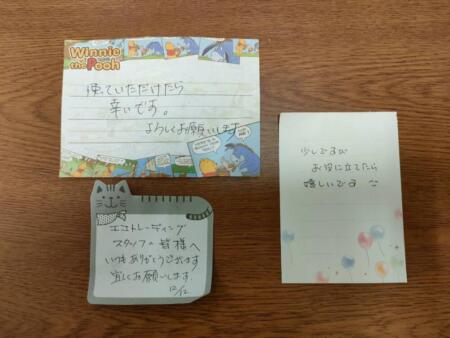 Winnie
the Pooh
使っていただけたら
幸いです。
よろしくお願いします
少しですが
お役に立てたら
嬉しいです
エコトレーディング
スタッフの皆様へ
いつもありがとうございます
宜しくお願いします。
12/12